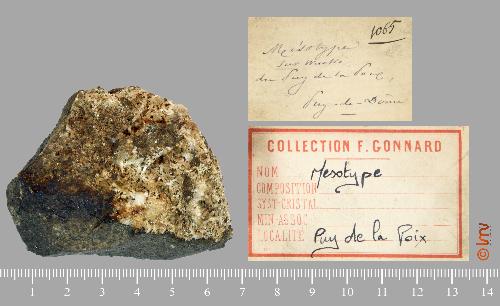 1065
Mésotype
sur wacke
du Puy de la Poix,
Puy-de-Dôme
COLLECTION F. GONNARD
NOM Mesotype
COMPOSITION
SYST-CRISTAL
MIN-ASSOC
LOCALITÉ Puy de la Poix
1 2 3 4 5 6 7 8 9 10 11 12 13 14